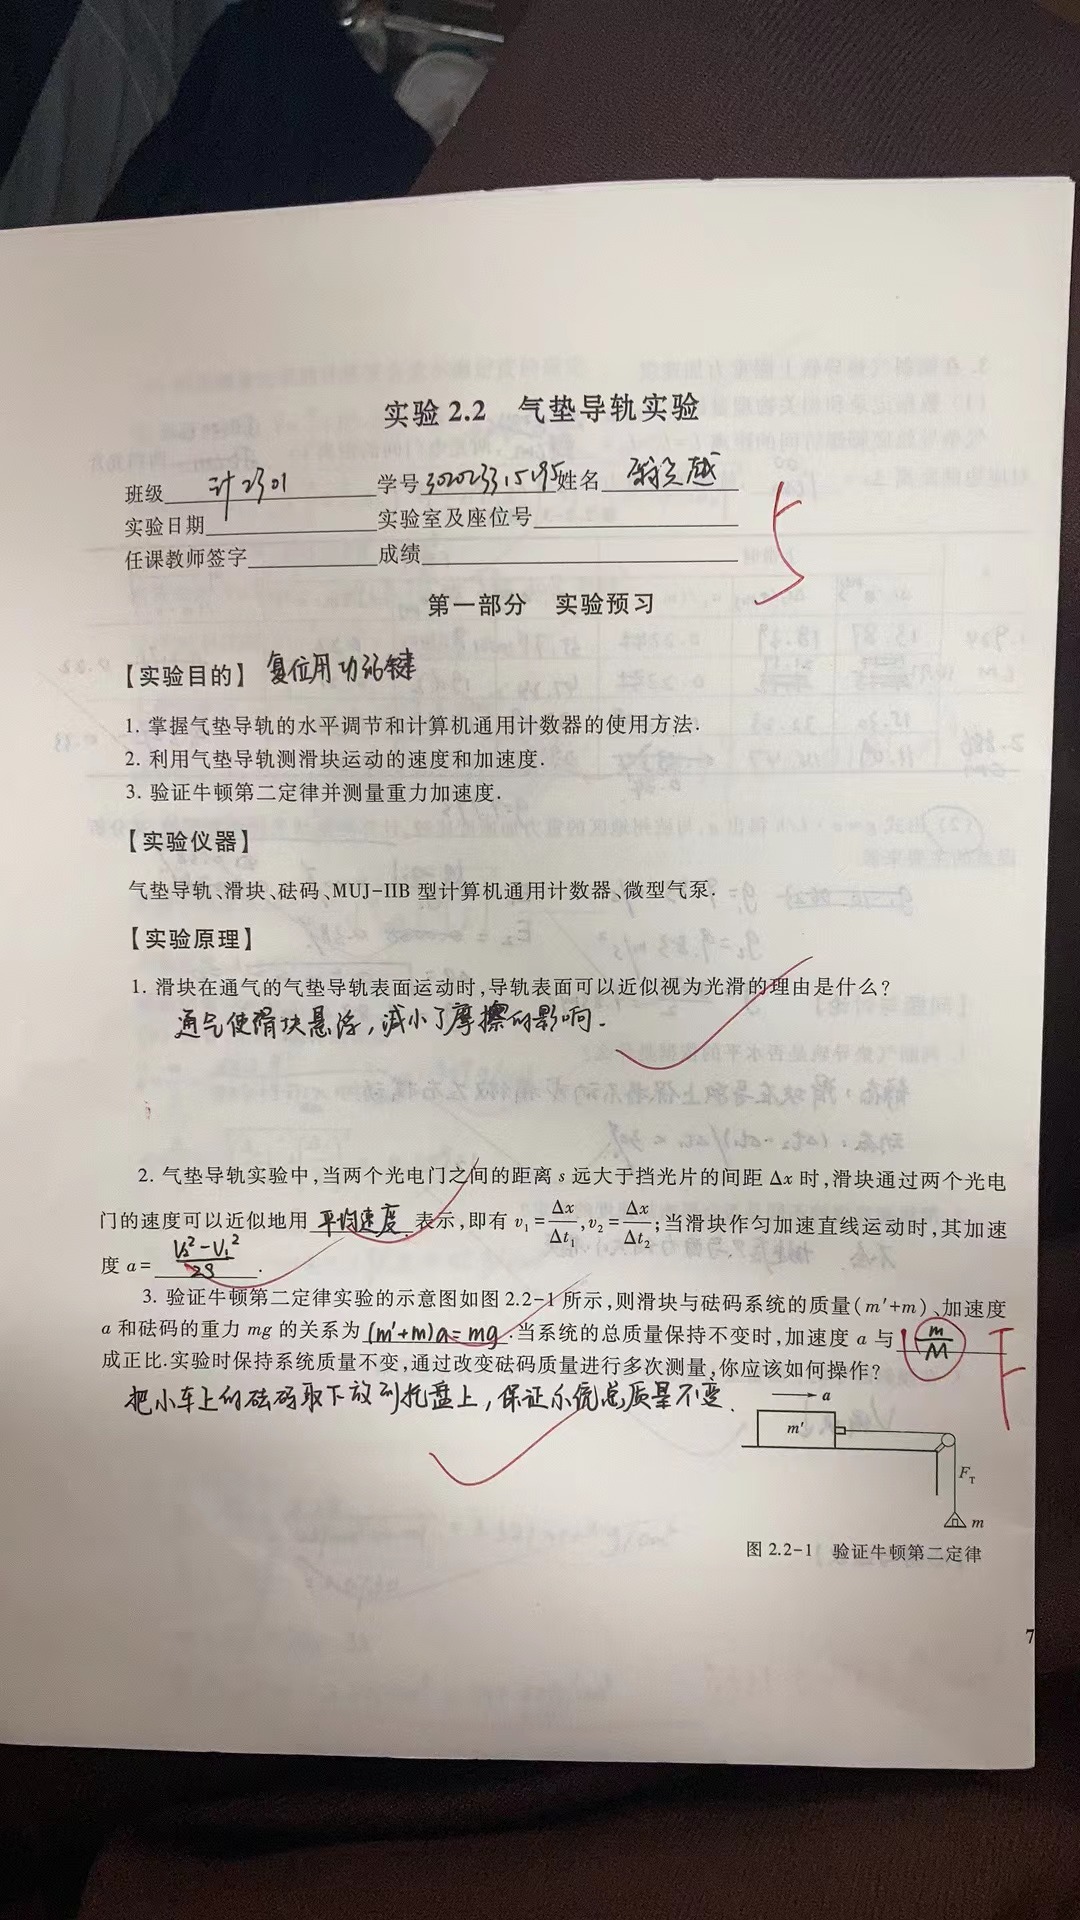 实验2.2 气垫导轨实验
班级 计2301 学号 302023315195 姓名
实验日期 实验室及座位号
任课教师签字 成绩
第一部分 实验预习
【实验目的】 复位用功能键
1. 掌握气垫导轨的水平调节和计算机通用计数器的使用方法.
2. 利用气垫导轨测滑块运动的速度和加速度.
3. 验证牛顿第二定律并测量重力加速度.
【实验仪器】
气垫导轨、滑块、砝码、MUJ-IIB 型计算机通用计数器、微型气泵.
【实验原理】
1. 滑块在通气的气垫导轨表面运动时,导轨表面可以近似视为光滑的理由是什么?
通气使滑块悬浮,减小了摩擦的影响.
2. 气垫导轨实验中,当两个光电门之间的距离 s 远大于挡光片的间距 Δx 时,滑块通过两个光电
门的速度可以近似地用 平均速度 表示,即有 v₁=Δx/Δt₁,v₂=Δx/Δt₂;当滑块作匀加速直线运动时,其加速
度 a= (V₂²-V₁²)/2S .
3. 验证牛顿第二定律实验的示意图如图 2.2-1 所示,则滑块与砝码系统的质量(m'+m)、加速度
a 和砝码的重力 mg 的关系为 (m'+m)a=mg .当系统的总质量保持不变时,加速度 a 与 m/M
成正比.实验时保持系统质量不变,通过改变砝码质量进行多次测量,你应该如何操作?
把小车上的砝码取下放到托盘上,保证系统总质量不变.
a
m'
F_T
m
图 2.2-1 验证牛顿第二定律
7